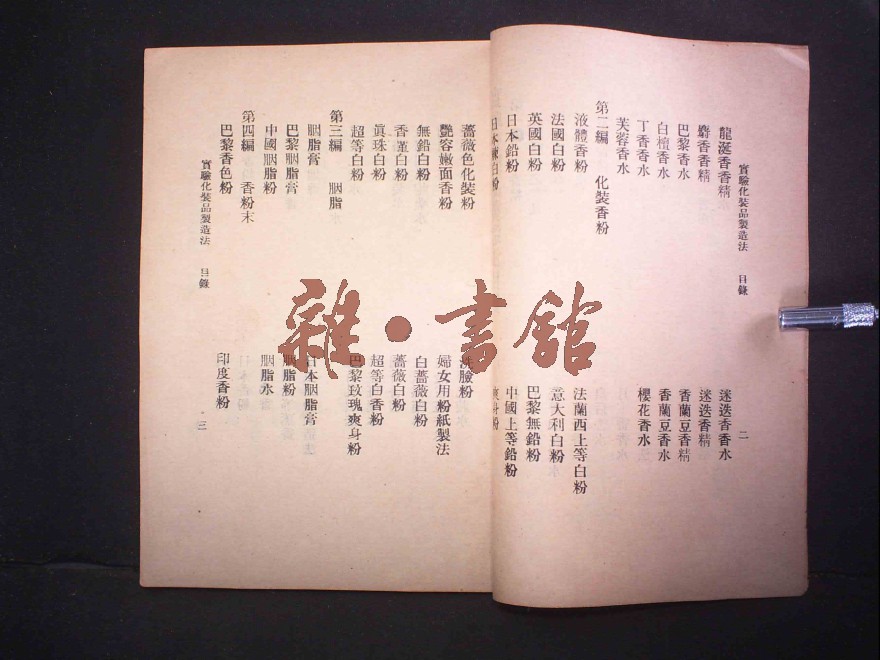 實驗化裝品製造法 目錄 二
龍涎香香精 迷迭香香水
麝香香精 迷迭香精
巴黎香水 香蘭豆香精
白檀香水 香蘭豆香水
丁香香水 櫻花香水
芙蓉香水
第二編 化裝香粉
液體香粉 法蘭西上等白粉
法國白粉 意大利白粉
英國白粉 巴黎無鉛粉
日本鉛粉 中國上等鉛粉
日本 白粉 爽身粉
薔薇色化裝粉 洗臉粉
艷容嫩面香粉 婦女用粉紙製法
無鉛白粉 白薔薇白粉
香菫白粉 薔薇白粉
眞珠白粉 超等白香粉
超等白粉 巴黎玫瑰爽身粉
第三編 胭脂
胭脂膏 日本胭脂膏
巴黎胭脂膏 胭脂粉
中國胭脂粉 胭脂水
第四編 香粉末
巴黎香色粉 印度香粉
實驗化裝品製造法 目錄 三
雜·書館